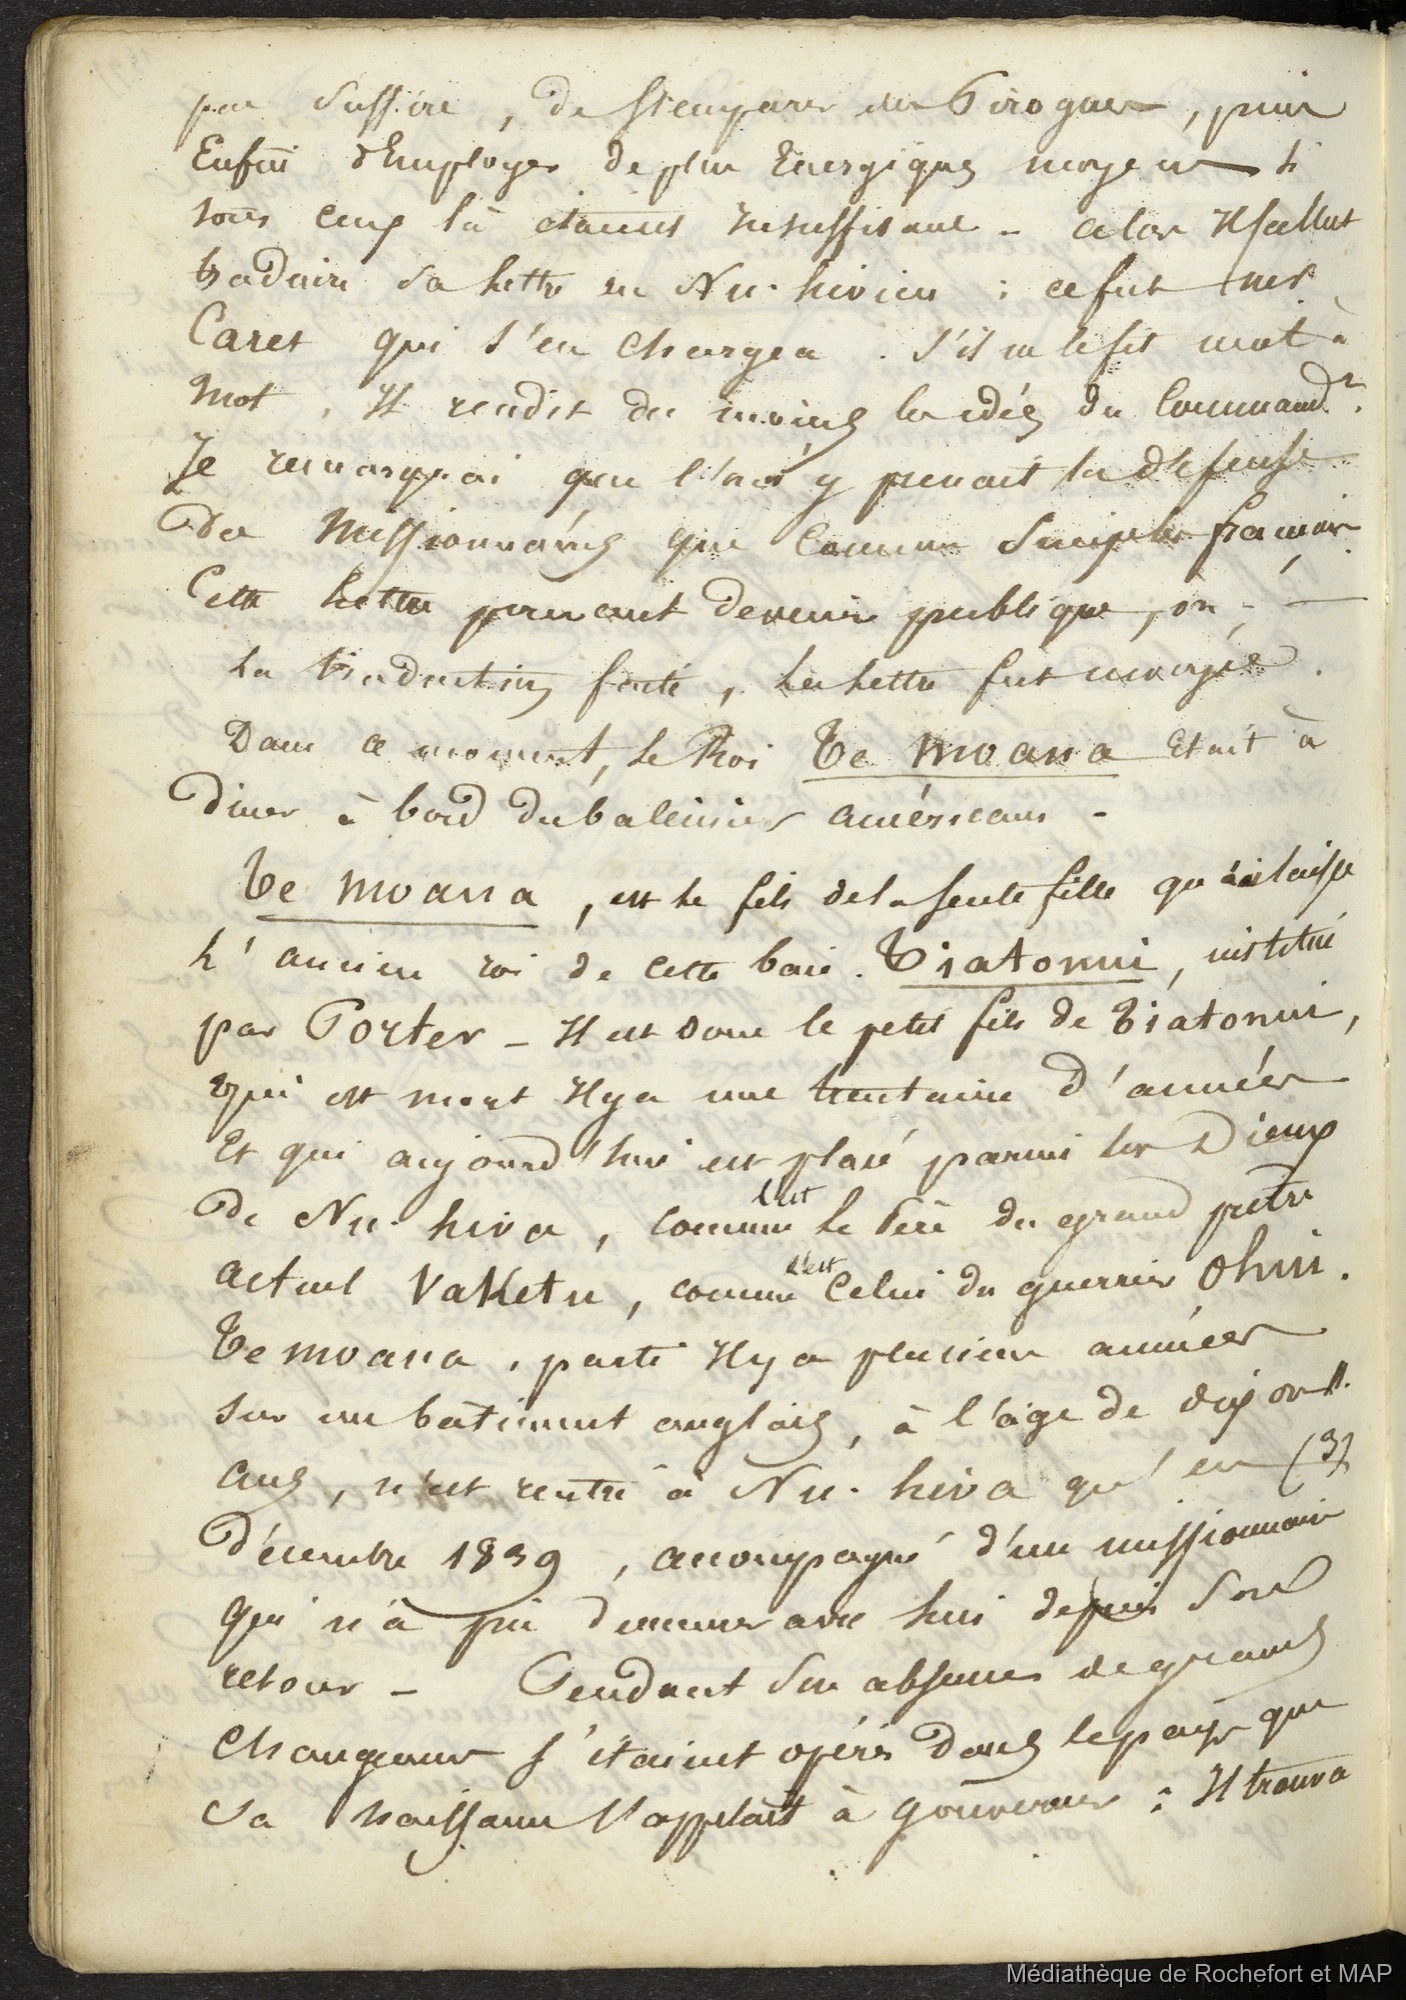 pas suffire, de s'emparer des Pirogues, puis
Enfin d'Employer de plus Energiques moyens Si
tous ceux là étaient insuffisans - alors Il fallut
traduire sa lettre en Nu-hivien : ce fut Mr
Caret qui s'en chargea. S'il ne le fit mot à
mot, Il rendit du moins les idées du Commandt.
Je remarquai que l'on y prenait la défense
Des Missionnaires que comme simples français.
Cette lettre pouvant devenir publique, on -
La traduction faite, la lettre fut envoyée.
Dans ce moment, le Roi Te moana Etait à
Diner à bord du baleinier américain -
Te moana, est le fils de la seule fille qu'ait laissé
L'ancien roi de cette baie. Tiatonui, institué
par Porter - Il est donc le petit fils de Tiatonui,
qui est mort Il y a une trentaine d'années
Et qui aujourd'hui est placé parmi les Dieux
De Nu-hiva, comme l'est le Père du grand prêtre
actuel Vaketu, comme l'est Celui du guerrier Ohui.
Te moana, parti Il y a plusieurs années
sur un bâtiment anglais, à l'âge de dix ou 11.
ans, n'est rentré à Nu-hiva qu'en (3)
Décembre 1839, accompagné d'un missionnaire
qui n'a pu demeurer avec lui depuis son
retour - Pendant son absence de grands
changemens s'étaient opérés Dans le pays que
sa naissance l'appelait à gouverner : Il trouva
Médiathèque de Rochefort et MAP